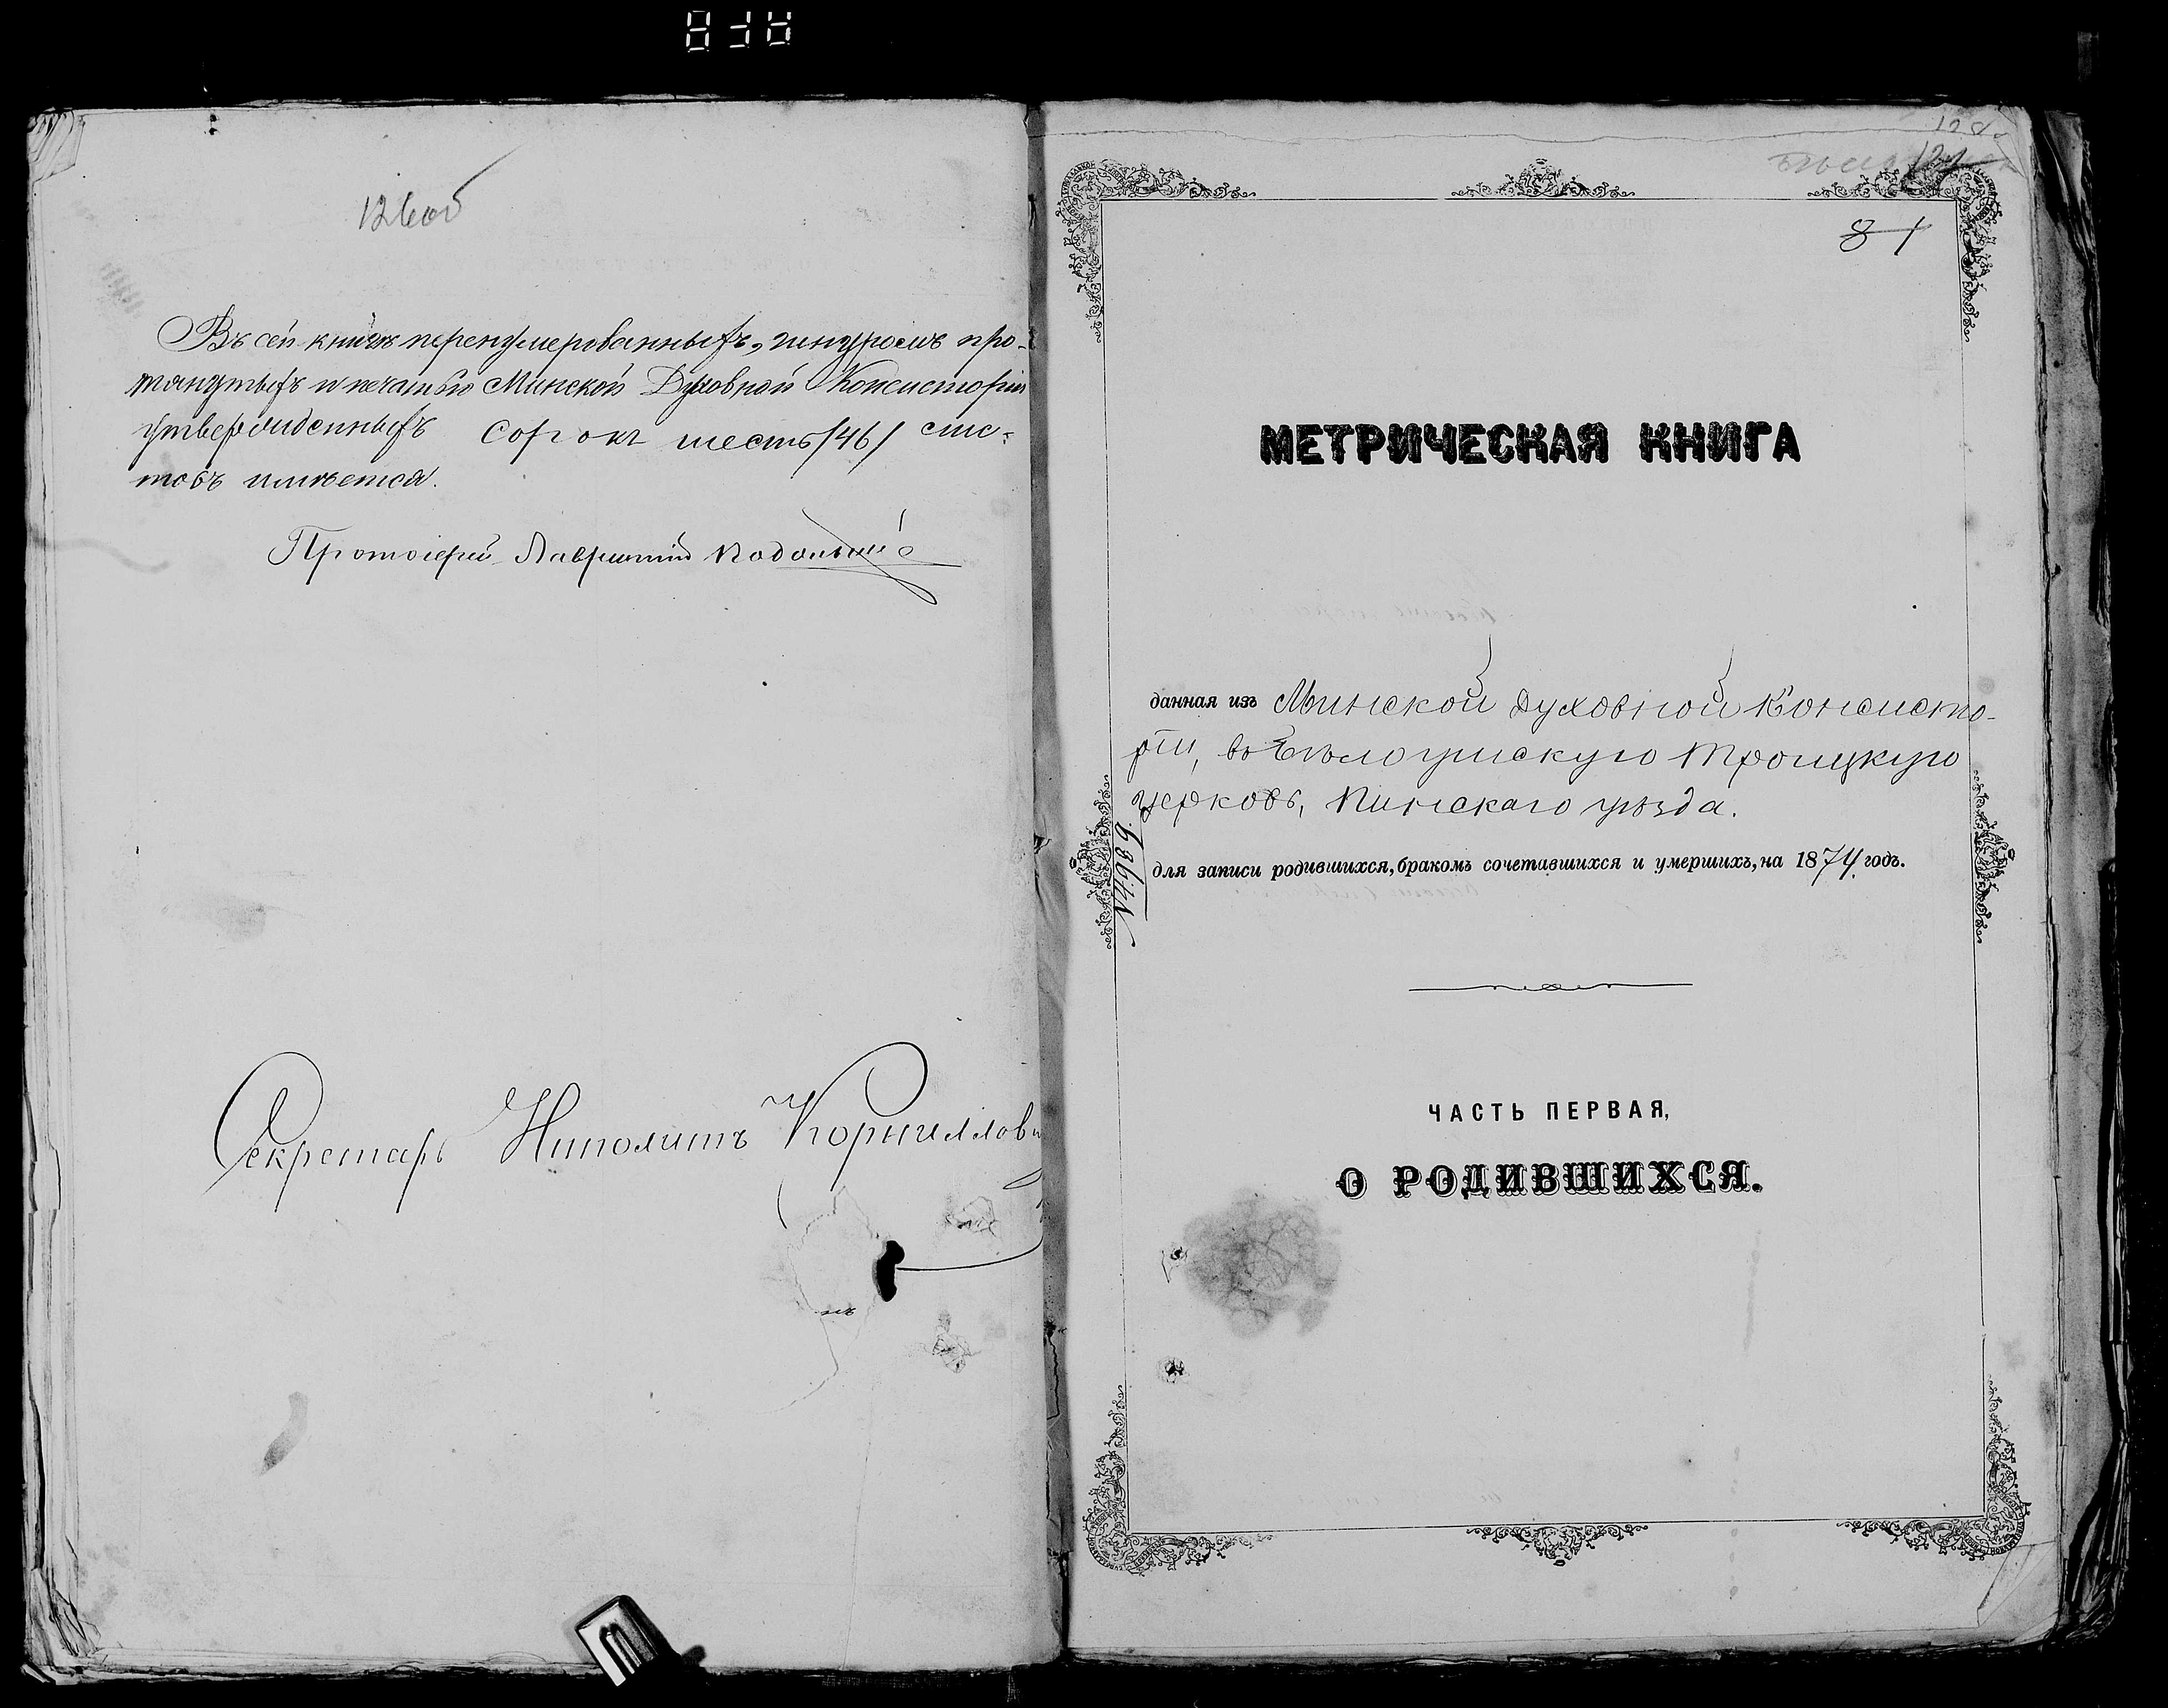 126об
Въ сей книгѣ перенумерованныхъ, шнуромъ про-
тянутыхъ и печатью Минской Духовной Консисторіи
утвержденныхъ сорокъ шесть /46/ лис-
товъ имѣется.
Протоіерей Лаврентій Подольскій
Секретарь Иполитъ Корниллови
127
81
МЕТРИЧЕСКАЯ КНИГА
данная изъ Минской Духовной Консисто-
ріи, въ Бѣлоушскую Троицкую
церковь, Пинскаго уѣзда.
для записи родившихся, бракомъ сочетавшихся и умершихъ, на 1874 годъ.
ЧАСТЬ ПЕРВАЯ,
О РОДИВШИХСЯ.